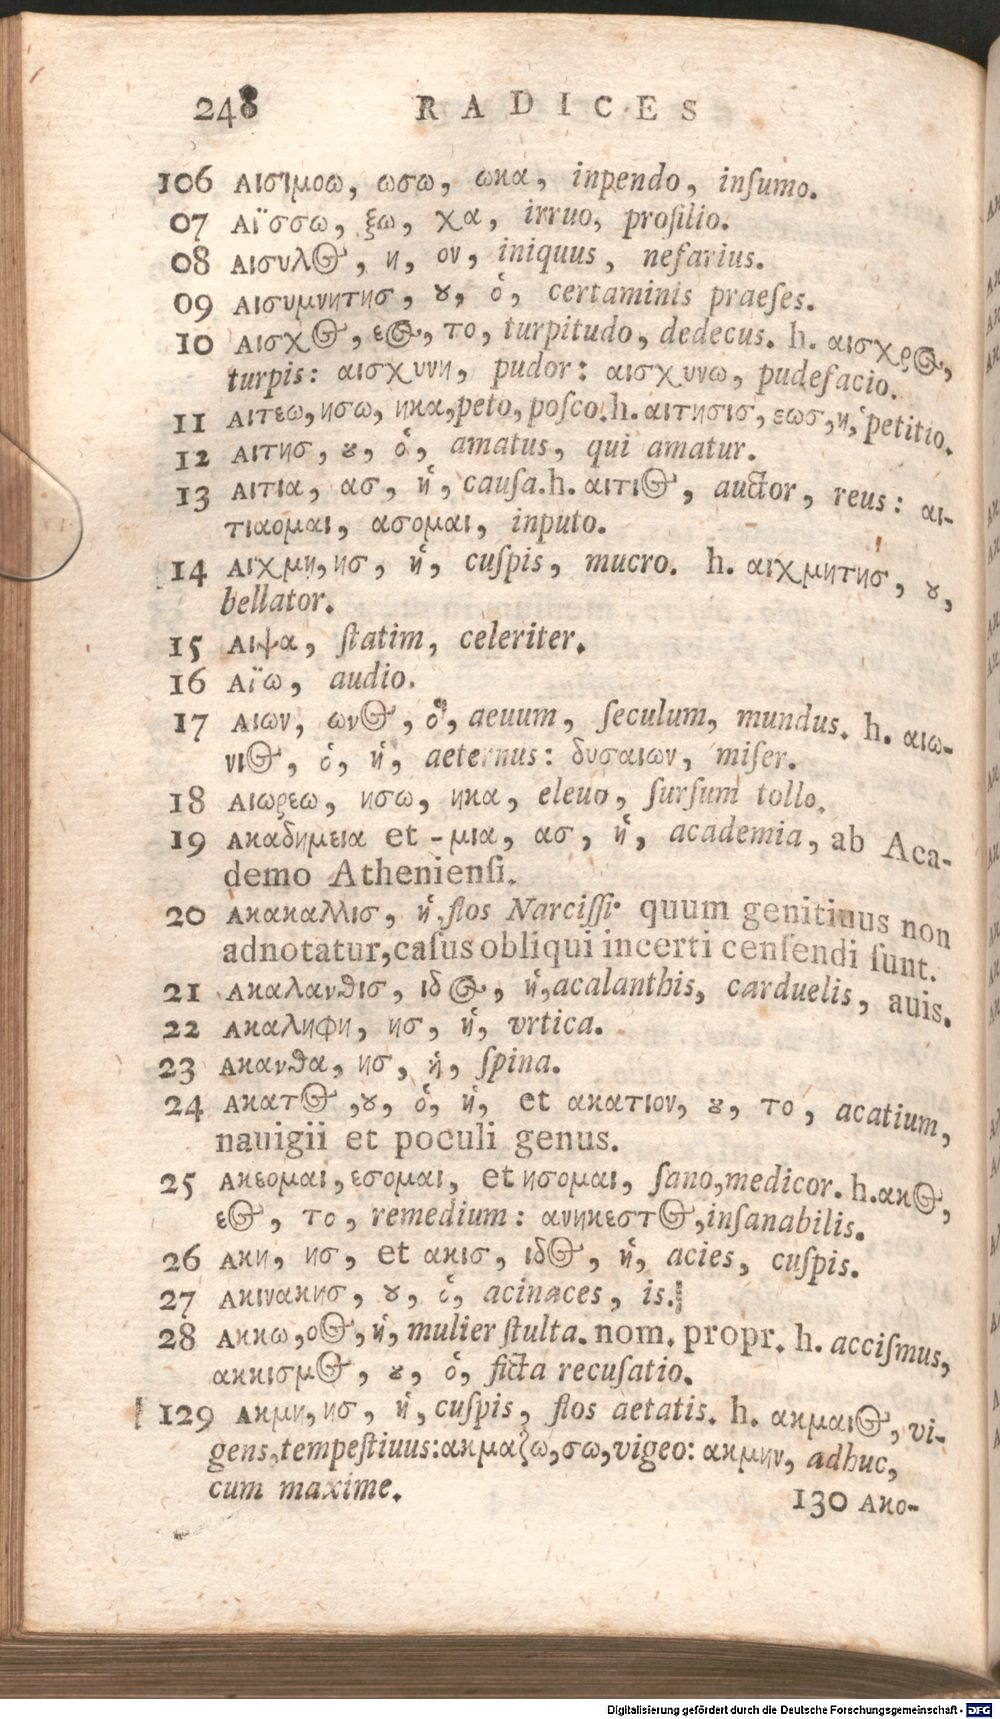 248 RADICES
106 Αισιμοω, ωσω, ωκα, inpendo, inſumo.
07 Αϊσσω, ξω, χα, irruo, proſilio.
08 Αισυλος, η, ον, iniquus, nefarius.
09 Αισυμνητησ, ȣ, ὁ, certaminis praeſes.
10 Αισχος, εος, το, turpitudo, dedecus. h. αισχρος,
turpis: αισχυνη, pudor: αισχυνω, pudefacio.
11 Αιτεω, ησω, ηκα, peto, poſco. h. αιτησισ, εωσ, ἡ, petitio.
12 Αιτησ, ȣ, ὁ, amatus, qui amatur.
13 Αιτια, ασ, ἡ, cauſa. h. αιτιος, auctor, reus: αι-
τιαομαι, ασομαι, inputo.
14 Αιχμη, ησ, ἡ, cuſpis, mucro. h. αιχμητησ, ȣ,
bellator.
15 Αιψα, ſtatim, celeriter.
16 Αϊω, audio.
17 Αιων, ωνος, ὁ, aeuum, ſeculum, mundus. h. αιω-
νιος, ὁ, ἡ, aeternus: δυσαιων, miſer.
18 Αιωρεω, ησω, ηκα, eleuo, ſurſum tollo.
19 Ακαδημεια et -μια, ασ, ἡ, academia, ab Aca-
demo Athenienſi.
20 Ακακαλλισ, ἡ, flos Narciſſi· quum genitiuus non
adnotatur, caſus obliqui incerti cenſendi ſunt.
21 Ακαλανθισ, ιδος, ἡ, acalanthis, carduelis, auis.
22 Ακαληφη, ησ, ἡ, vrtica.
23 Ακανθα, ησ, ἡ, ſpina.
24 Ακατος, ȣ, ὁ, ἡ, et ακατιον, ȣ, το, acatium,
nauigii et poculi genus.
25 Ακεομαι, εσομαι, et ησομαι, ſano, medicor. h. ακος,
εος, το, remedium: ανηκεστος, inſanabilis.
26 Ακη, ησ, et ακισ, ιδος, ἡ, acies, cuſpis.
27 Ακινακησ, ȣ, ὁ, acinaces, is.
28 Ακκω, ος, ἡ, mulier ſtulta. nom. propr. h. acciſmus,
ακκισμος, ȣ, ὁ, ficta recuſatio.
129 Ακμη, ησ, ἡ, cuſpis, flos aetatis. h. ακμαιος, vi-
gens, tempeſtiuus: ακμαζω, σω, vigeo: ακμην, adhuc,
cum maxime.
130 Ακο-
Digitalisierung gefördert durch die Deutsche Forschungsgemeinschaft - DFG